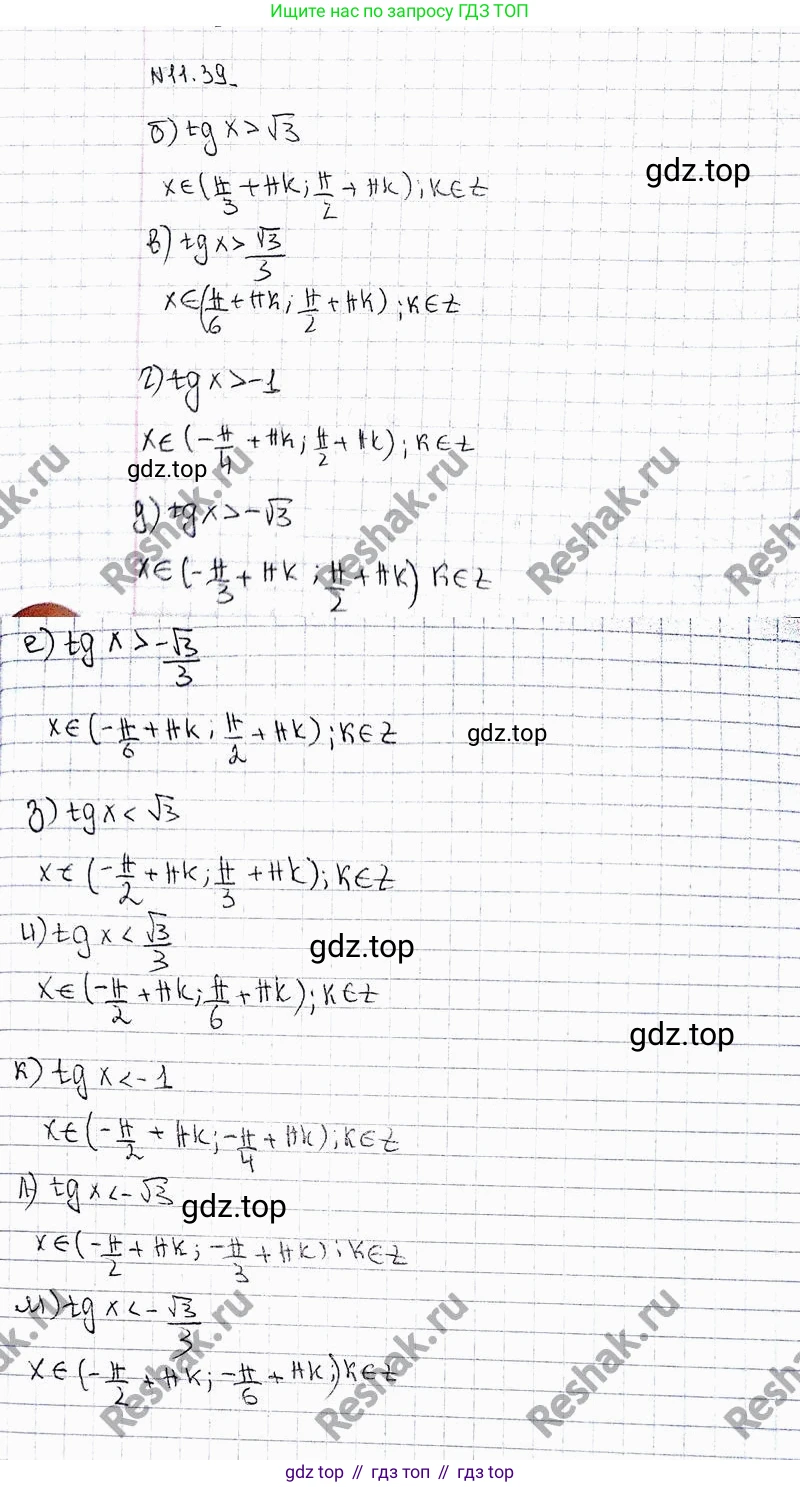 Ищите нас по запросу ГДЗ ТОП
N11.39
б) tg x > √3
x∈(π/3 + πk; π/2 + πk); k∈Z
gdz.top
в) tg x > √3/3
x∈(π/6 + πk; π/2 + πk); k∈Z
г) tg x > -1
x∈(-π/4 + πk; π/2 + πk); k∈Z
gdz.top
д) tg x > -√3
x∈(-π/3 + πk; π/2 + πk) k∈Z
Reshak.ru Reshak.ru Reshak.ru Reshak.ru
е) tg x > -√3/3
x∈(-π/6 + πk; π/2 + πk); k∈Z
gdz.top
з) tg x < √3
x∈(-π/2 + πk; π/3 + πk); k∈Z
и) tg x < √3/3
gdz.top
x∈(-π/2 + πk; π/6 + πk); k∈Z
gdz.top
к) tg x < -1
x∈(-π/2 + πk; -π/4 + πk); k∈Z
л) tg x < -√3
gdz.top
x∈(-π/2 + πk; -π/3 + πk); k∈Z
м) tg x < -√3/3
x∈(-π/2 + πk; -π/6 + πk;) k∈Z
Reshak.ru Reshak.ru Reshak.ru Reshak.ru
gdz top // гдз топ // gdz top